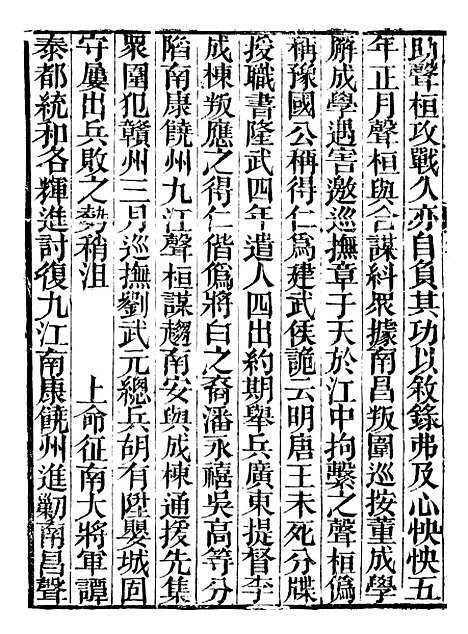 助聲桓攻戰久亦自負其功以敘錄弗及心怏怏五
年正月聲桓與合謀糾眾據南昌叛圍巡按董成學
廨成學遇害邀巡撫章于天於江中拘繫之聲桓僞
稱豫國公稱得仁爲建武侯詭云明唐王未死分牒
授職書隆武四年遣人四出約期舉兵廣東提督李
成棟叛應之得仁偕僞將白之裔潘永禧吳高等分
陷南康饒州九江聲桓謀趨南安與成棟通援先集
眾圍犯贛州三月巡撫劉武元總兵胡有陞嬰城固
守屢出兵敗之勢稍沮　上命征南大將軍譚
泰都統和洛輝進討復九江南康饒州進勦南昌聲